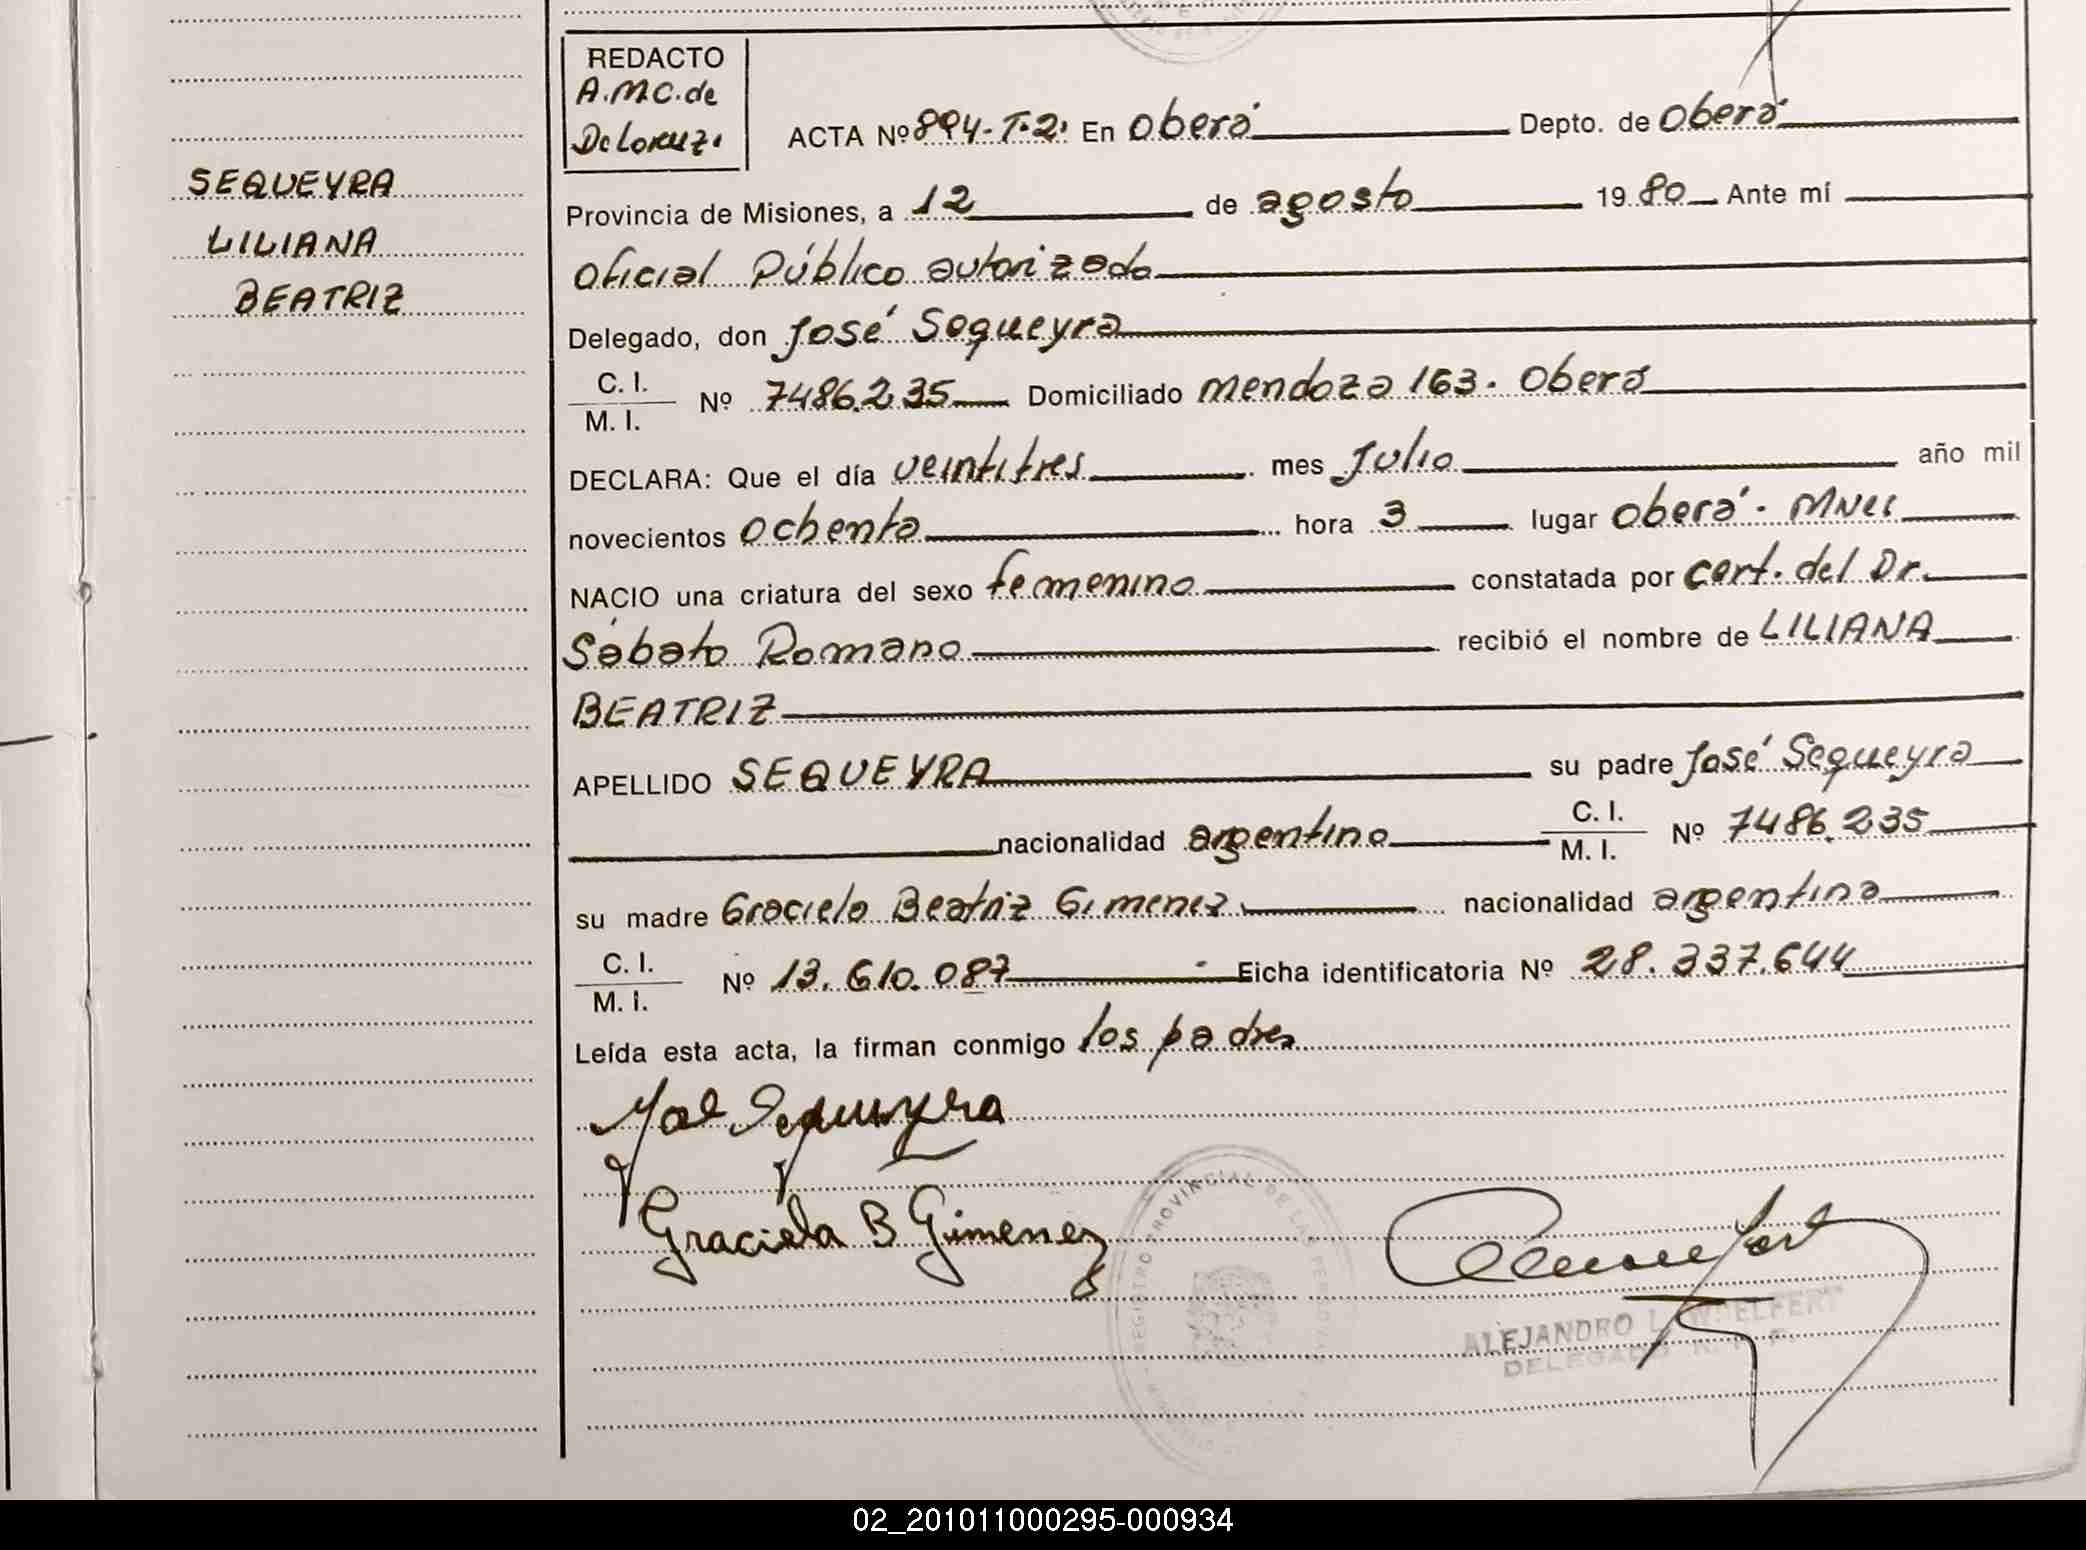 REDACTO
A.M.C. de
De Lorenzi
ACTA Nº 894-T-2: En Oberá Depto. de Oberá
SEQUEYRA
LILIANA
BEATRIZ
Provincia de Misiones, a 12 de agosto 1980 Ante mí
Oficial Público autorizado
Delegado, don José Sequeyra
C. I.
M. I. Nº 7486.235 Domiciliado Mendoza 163. Oberá
DECLARA: Que el día veintitres mes Julio año mil
novecientos ochenta hora 3 lugar Oberá. Mnes
NACIO una criatura del sexo femenino constatada por cert. del Dr.
Sábato Romano recibió el nombre de LILIANA
BEATRIZ
APELLIDO SEQUEYRA su padre José Sequeyra
nacionalidad argentino C. I. M. I. Nº 7486.235
su madre Graciela Beatriz Gimenez nacionalidad argentina
C. I.
M. I. Nº 13.610.087 Ficha identificatoria Nº 28.337.644
Leída esta acta, la firman conmigo los padres
José Sequeyra
Graciela B Gimenez
REGISTRO PROVINCIAL DE LAS PERSONAS
ALEJANDRO L. WOELFERT
DELEGADO R. P. P.
02_201011000295-000934